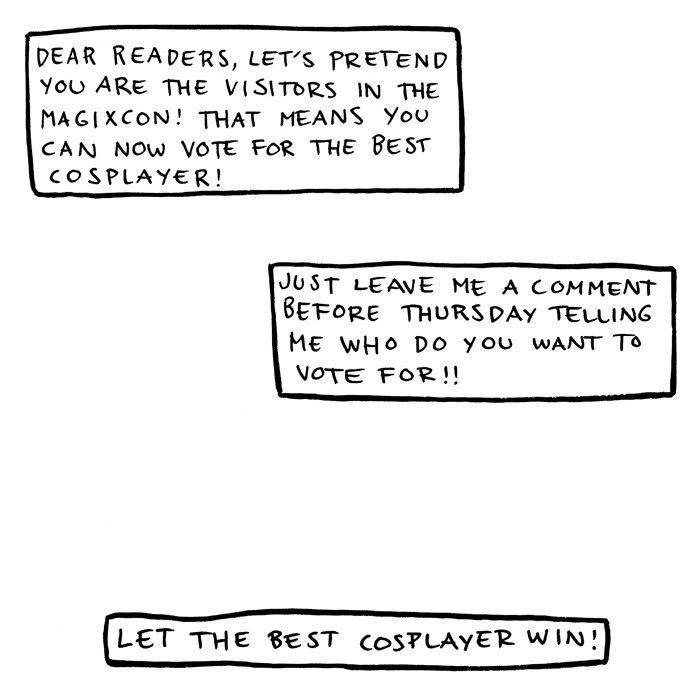 DEAR READERS, LET'S PRETEND
YOU ARE THE VISITORS IN THE
MAGIXCON! THAT MEANS YOU
CAN NOW VOTE FOR THE BEST
COSPLAYER!
JUST LEAVE ME A COMMENT
BEFORE THURSDAY TELLING
ME WHO DO YOU WANT TO
VOTE FOR!!
LET THE BEST COSPLAYER WIN!